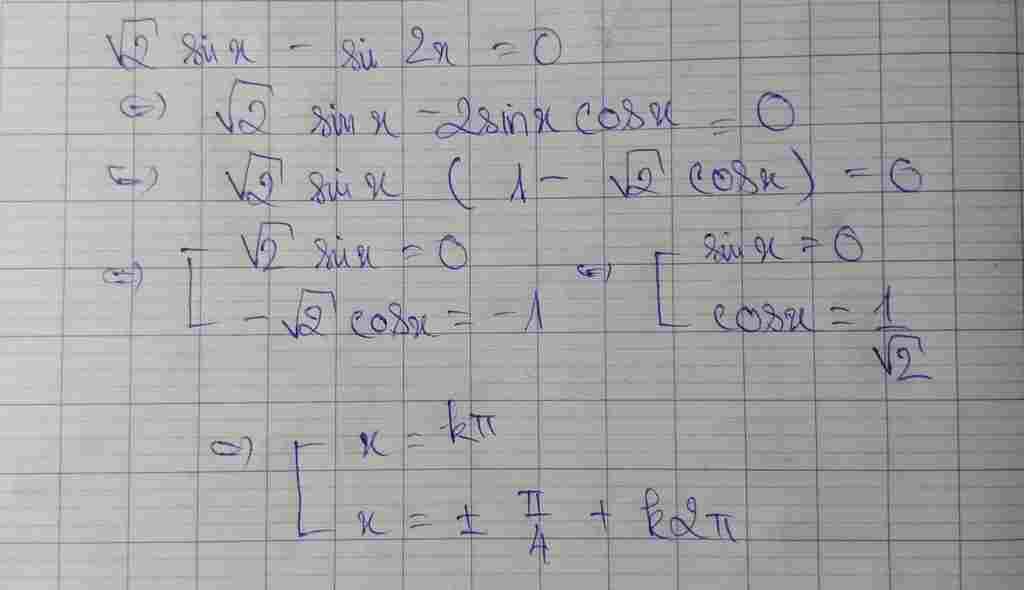 √2 sin x - sin 2x = 0
⇔ √2 sin x - 2 sin x cos x = 0
⇔ √2 sin x (1 - √2 cos x) = 0
⇔ [ √2 sin x = 0 ⇔ [ sin x = 0
- √2 cos x = -1 cos x = 1/√2
⇔ [ x = kπ
x = ± π/4 + k2π